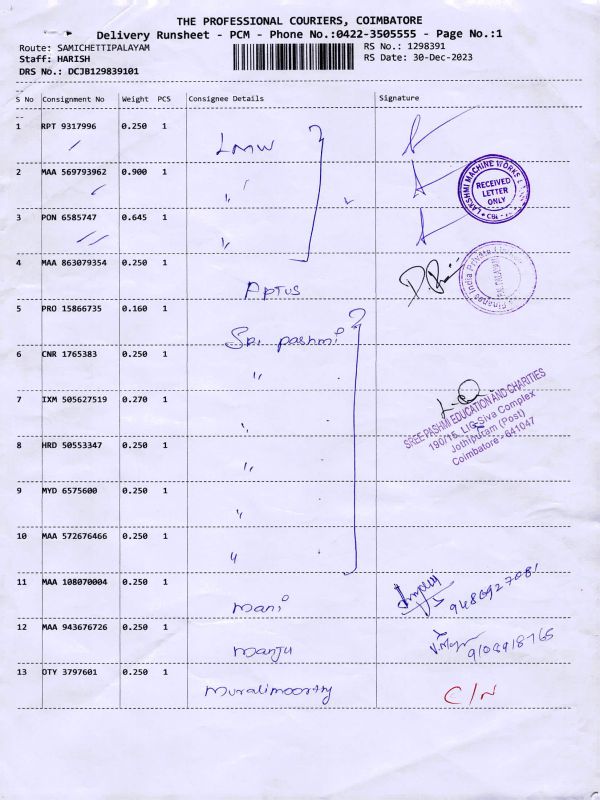 THE PROFESSIONAL COURIERS, COIMBATORE
Delivery Runsheet - PCM - Phone No.:0422-3505555 - Page No.:1
Route: SAMICHETTIPALAYAM RS No.: 1298391
Staff: HARISH RS Date: 30-Dec-2023
DRS No.: DCJB129839101
S No Consignment No Weight PCS Consignee Details Signature
1 RPT 9317996 0.250 1 LMW
2 MAA 569793962 0.900 1 "
LAKSHMI MACHINE WORKS
RECEIVED
LETTER
ONLY
3 PON 6585747 0.645 1 "
4 MAA 863079354 0.250 1 Aptus
Finance India Private
5 PRO 15866735 0.160 1 Sri pashmi
6 CNR 1765383 0.250 1 "
7 IXM 505627519 0.270 1 "
SREE PASHMI EDUCATION AND CHARITIES
190/15, L/G Siva Complex
Jothipuram (Post)
Coimbatore - 641047
8 HRD 50553347 0.250 1 "
9 MYD 6575600 0.250 1 "
10 MAA 572676466 0.250 1 "
11 MAA 108070004 0.250 1 Mani
12 MAA 943676726 0.250 1 Manju
13 OTY 3797601 0.250 1 Muralimoorthy C/N